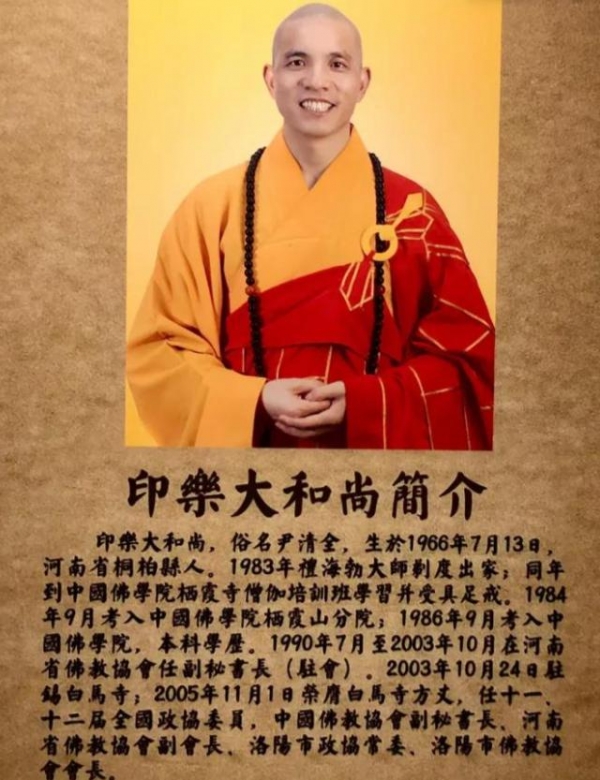 印樂大和尚簡介
印樂大和尚，俗名尹清全，生於1966年7月13日，
河南省桐柏縣人。1983年禮海勃大師剃度出家；同年
到中國佛學院栖霞寺僧伽培訓班學習并受具足戒。1984
年9月考入中國佛學院栖霞山分院；1986年9月考入中
國佛學院，本科學歷。1990年7月至2003年10月在河南
省佛教協會任副秘書長（駐會）。2003年10月24日駐
錫白馬寺；2005年11月1日榮膺白馬寺方丈，任十一、
十二届全國政協委員，中國佛教協會副秘書長、河南
省佛教協會副會長、洛陽市政協常委、洛陽市佛教協
會會長。